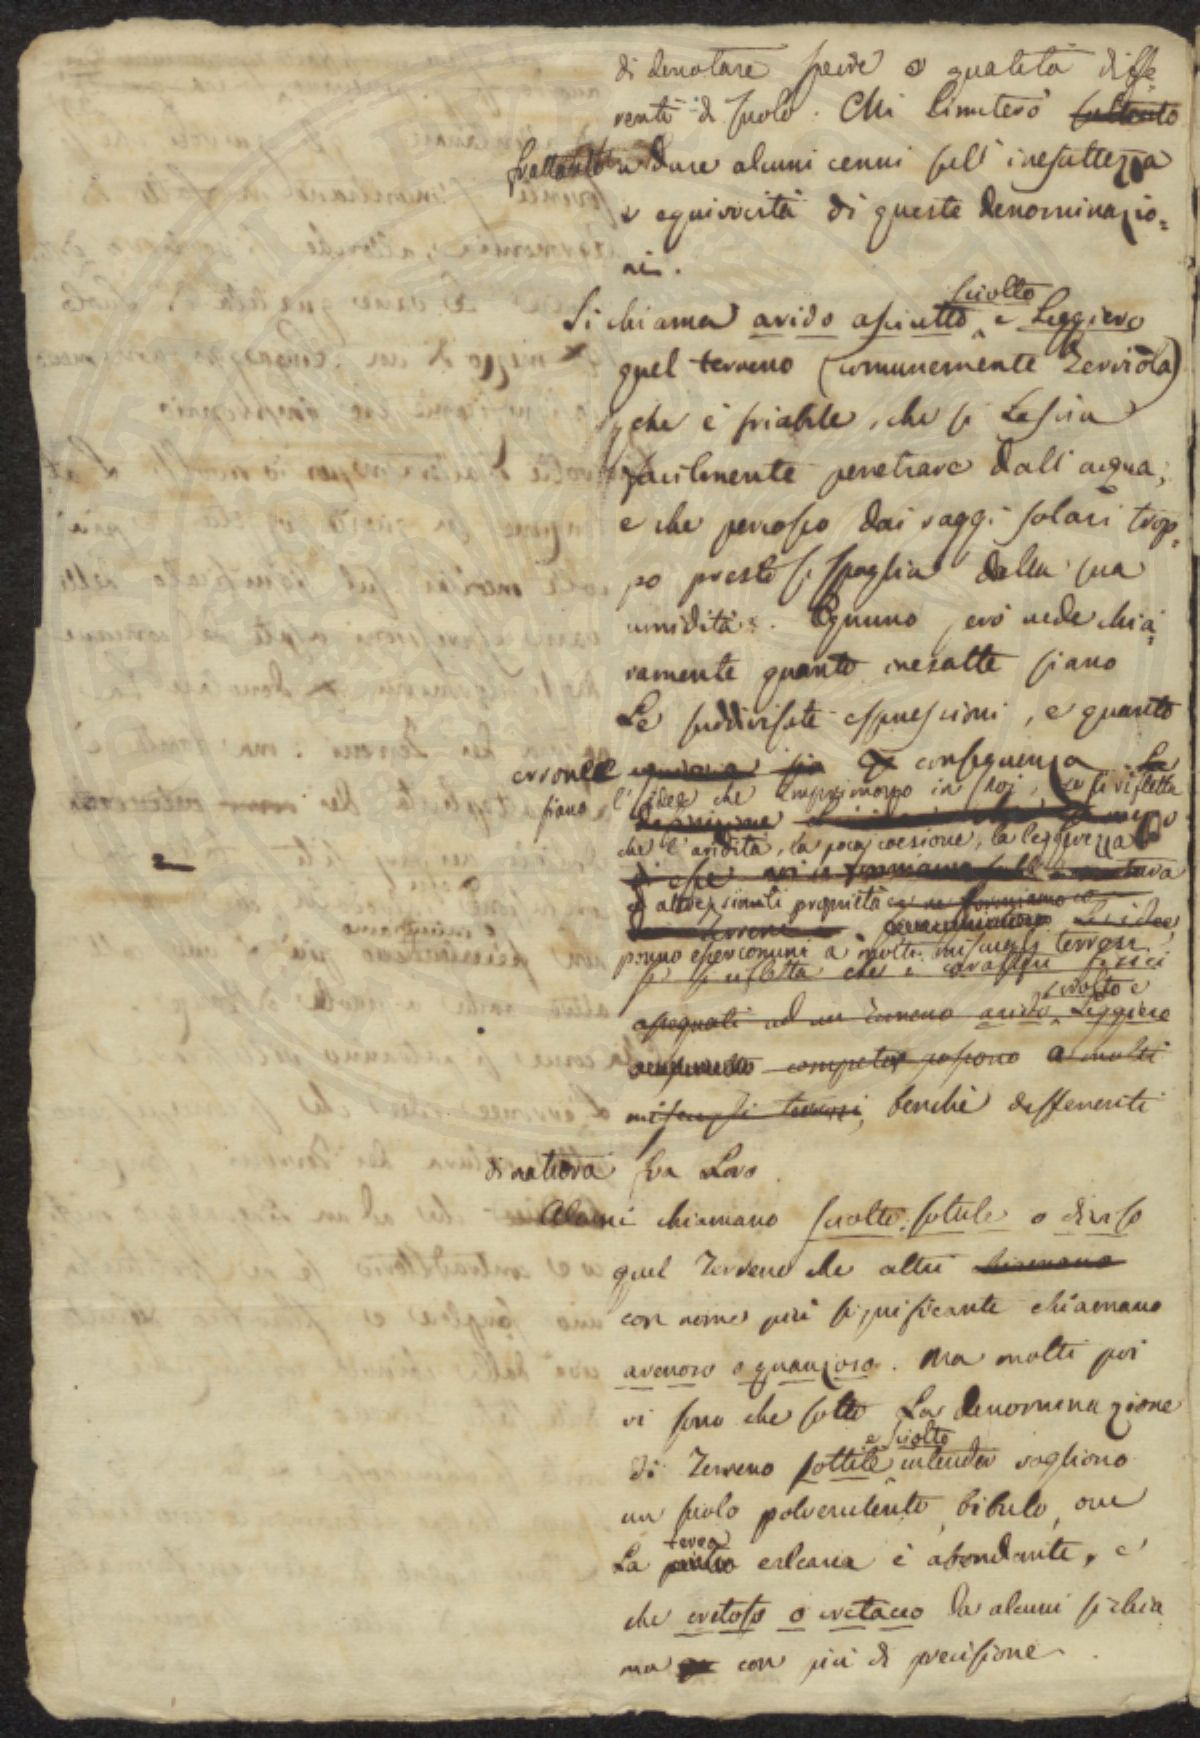 di denotare specie e qualità diffe-
renti di suolo. Mi limiterò soltanto
frattanto a dare alcuni cenni sull'inesattezza
e equivocità di queste denominazio-
ni.
sciolto
Si chiama arido asciutto e Leggiero
quel terreno (comunemente Terriccia)
che è friabile, che si Lascia
facilmente penetrare dall'acqua,
e che percosso dai raggi solari trop-
po presto si spoglia della sua
umidità. Ognuno però vede chia-
ramente quanto inesatte siano
Le suddivisate espressioni, e quanto
erronee sia conseguenza La
siano l'idee che imprimono in noi, se si rifletta
che l'aridità, la poca coesione, la leggerezza
ed altre simili proprietà ce ne formiamo
Terreni Le idee
ponno esser comuni a molti miscugli terrosi
si rifletta che i caratteri fisici
sciolto e
assegnati ad un terreno arido Leggiero
competer possono a molti
miscugli terrosi, benchè differenti
di natura fra Loro.
Alcuni chiamano sciolto, sotile o diviso
quel Terreno che altri chiamano
con nome più significante chiamano
arenoso o quarzoso. Ma molti poi
vi sono che sotto La denominazione
e sciolto
di Terreno sottile intender vogliono
un suolo polverulento, bibulo, ove
terra
La calcaria è abondante, e
che cretoso o cretaceo da alcuni si chia
ma con più di precisione.